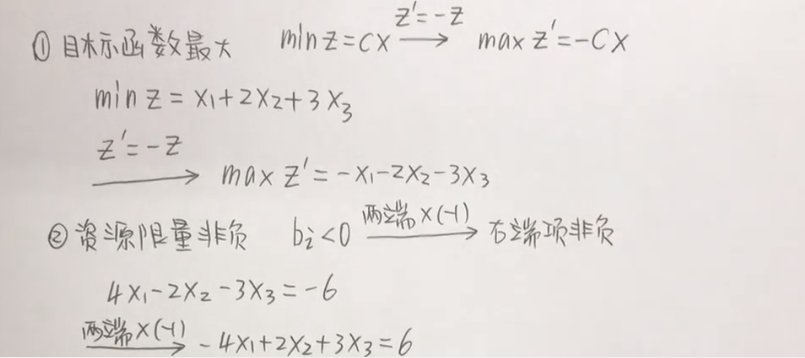 ① 目标函数最大 min z = CX —z'=-z→ max z' = -CX
min z = x₁+2x₂+3x₃
z' = -z
→ max z' = -x₁-2x₂-3x₃
② 资源限量非负 bᵢ<0 —两端×(-1)→ 右端项非负
4x₁-2x₂-3x₃=-6
—两端×(-1)→ -4x₁+2x₂+3x₃=6